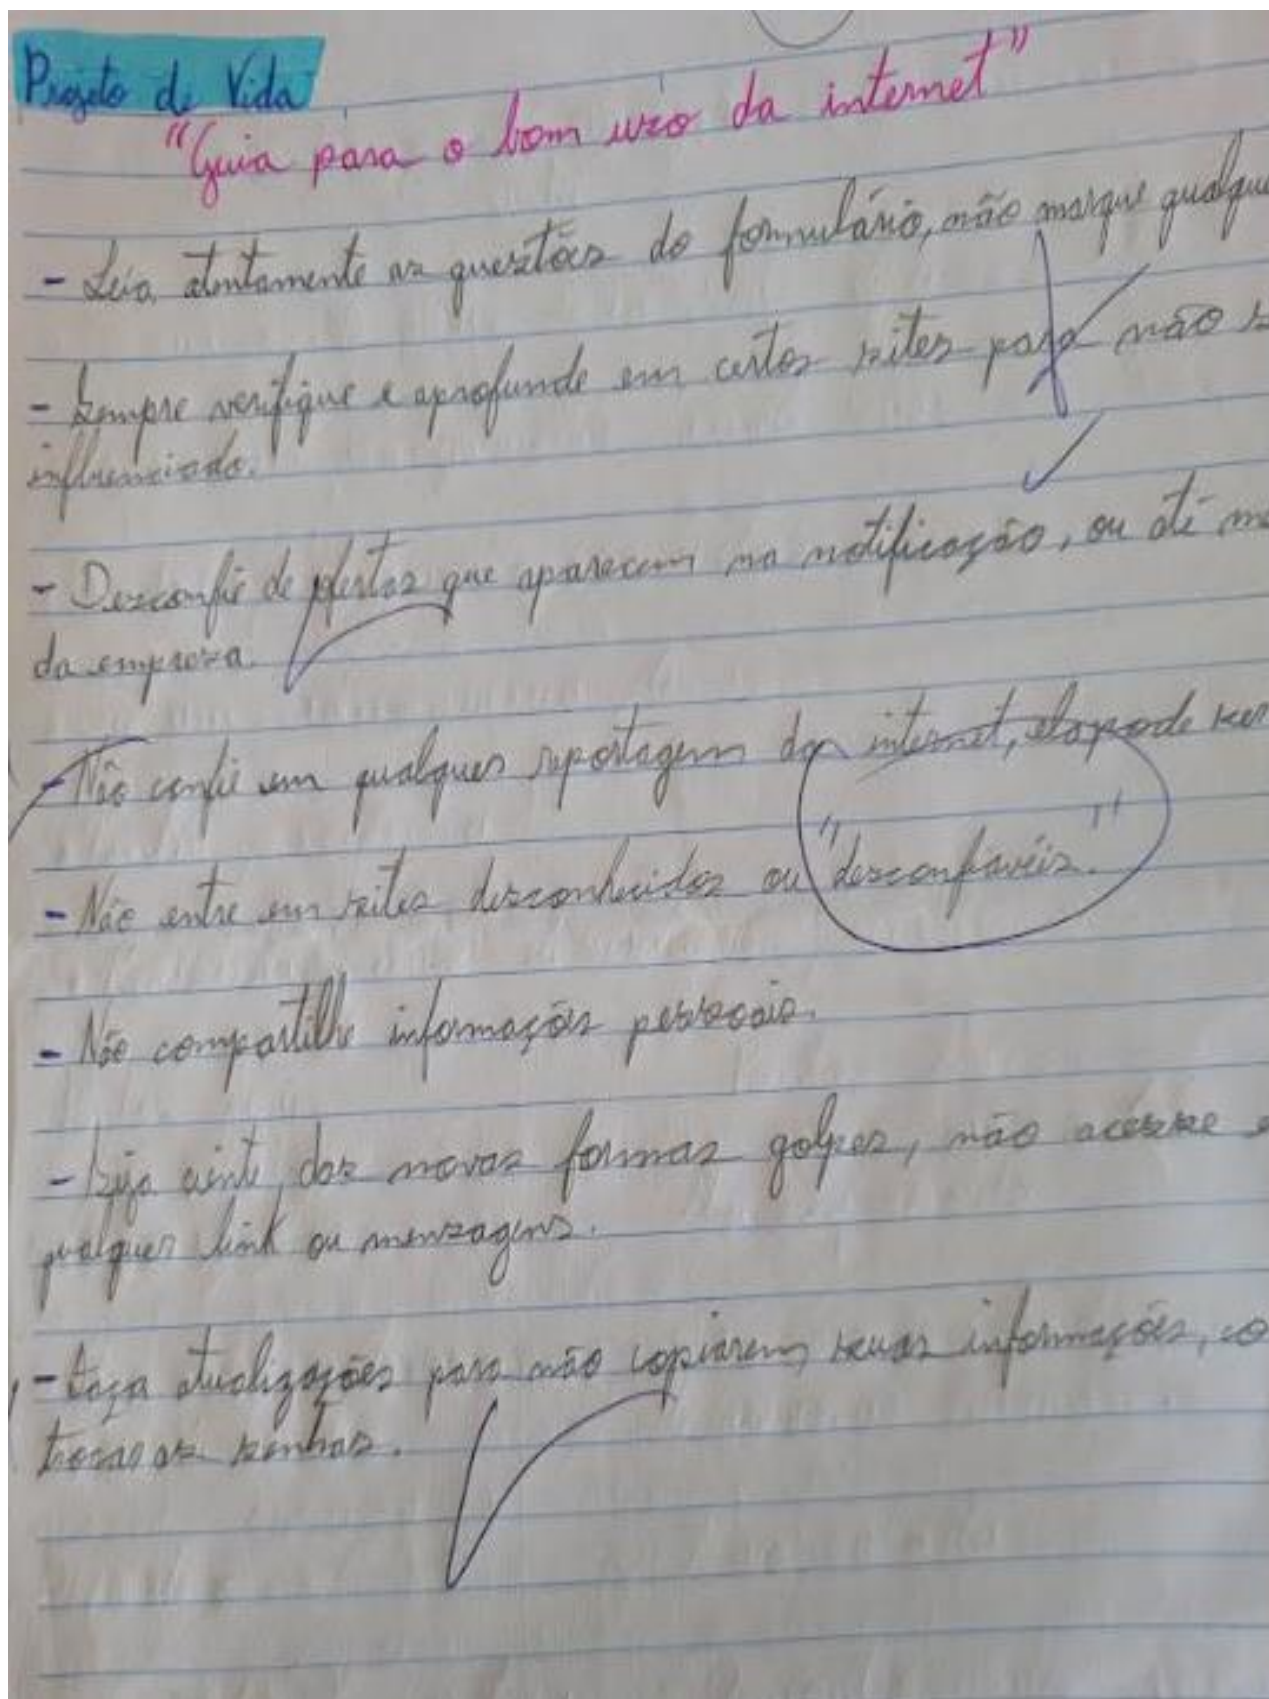 Projeto de Vida
"Guia para o bom uso da internet"
- Leia atentamente as questões do formulário, não marque qualque
- Sempre verifique e aprofunde em certos sites para não s
influenciado.
- Desconfie de ofertas que aparecem na notificação, ou até me
da empresa.
- Não confie em qualquer reportagem da internet, ela pode ser
- Não entre em sites desconhecidos ou "desconfiavéis."
- Não compartilhe informações pessoais.
- Seja ciente das novas formas golpes, não acesse e
qualquer link ou mensagens.
- Faça atualizações para não copiarem suas informações, co
trocar as senhas.